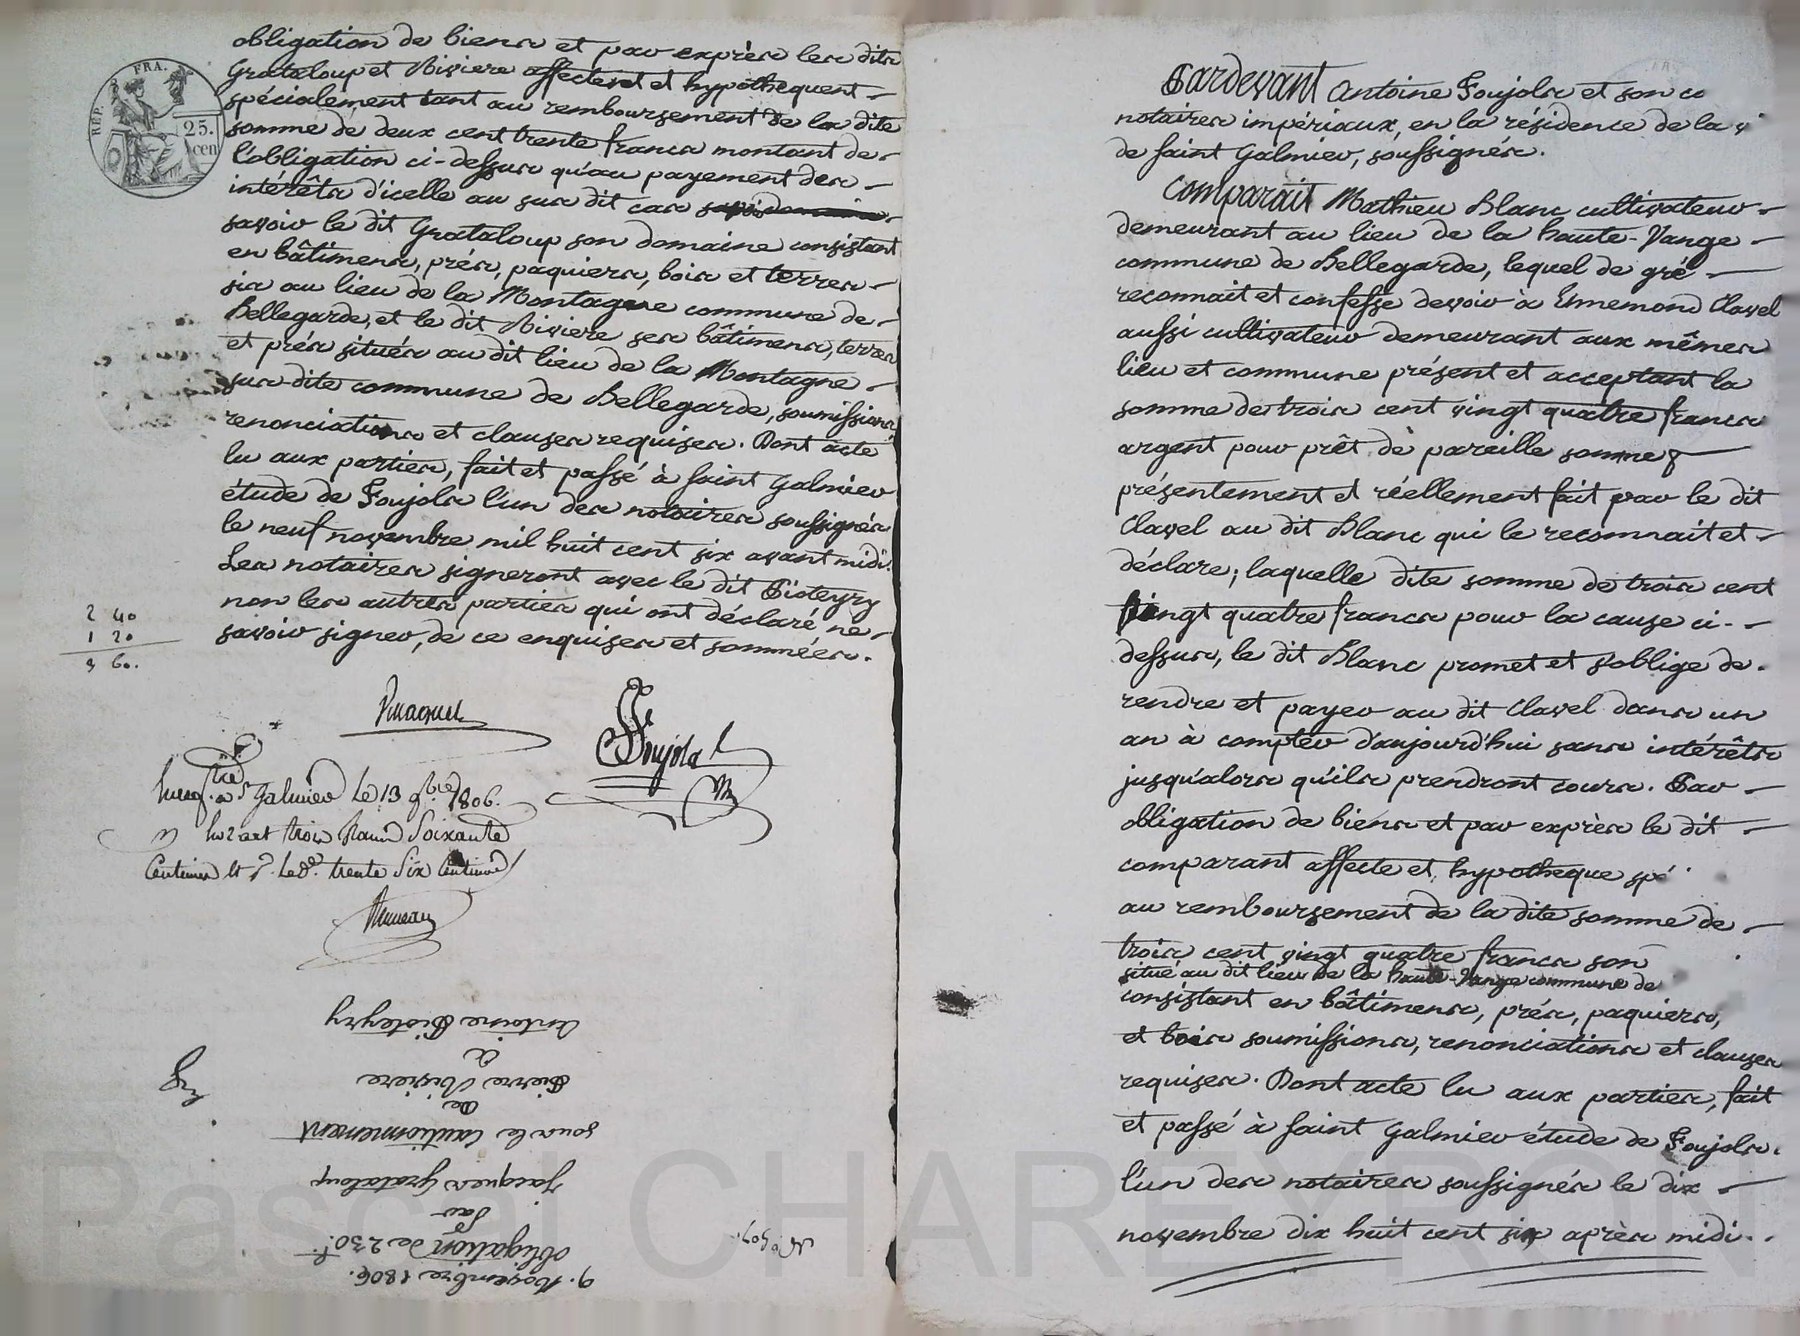 REP. FRA.
25.
cen
obligation de biens et par exprès les dits
Grataloup et Riviere affectent et hypothequent
spécialement tant au remboursement de la dite
somme de deux cent trente francs montant de
l'obligation ci-dessus qu'au payement des
intérêts d'icelle au sus dit cas
savoir le dit Grataloup son domaine consistant
en bâtimens, prés, paquiers, bois et terres
sis au lieu de la Montagne commune de
Bellegarde, et le dit Riviere ses bâtimens, terres
et prés situés au dit lieu de la Montagne
sus-dite commune de Bellegarde, soumissions
renonciations et clauses requises. Dont acte
lu aux parties, fait et passé à saint Galmier
étude de Foujols l'un des notaires soussignés
le neuf novembre mil huit cent six avant midi.
Les notaires signeront avec le dit Pioteyry
non les autres parties qui ont déclaré ne
savoir signer, de ce enquises et sommées.
2 40
1 20
3 60.
Foujols
à St Galmier Le 13 9bre 1806.
trois francs soixante
Centimes et trente six Centimes
9. Novembre 1806.
obligation de 230 f.
Par
Jacques Grataloup
sous le Cautionnement
de
Pierre Riviere
à
Antoine Pioteyry
Pardevant Antoine Foujols et son co
notaires impériaux, en la résidence de la v
de saint Galmier, soussignés.
Comparait Mathieu Blanc cultivateur
demeurant au lieu de la haute-Vange
commune de Bellegarde, lequel de gré
reconnait et confesse devoir à Ennemond Clavel
aussi cultivateur demeurant aux mêmes
lieu et commune présent et acceptant la
somme de trois cent vingt quatre francs
argent pour prêt de pareille somme
présentement et réellement fait par le dit
Clavel au dit Blanc qui le reconnait et
déclare; laquelle dite somme de trois cent
vingt quatre francs pour la cause ci-
dessus, le dit Blanc promet et s'oblige de
rendre et payer au dit Clavel dans un
an à compter d'aujourd'hui sans intérêts
jusqu'alors qu'ils prendront cours. Par
obligation de biens et par exprès le dit
comparant affecte et hypotheque spé
au remboursement de la dite somme de
trois cent vingt quatre francs son
situé au dit lieu de la haute-Vange commune de
consistant en bâtimens, prés, paquiers,
et bois soumissions, renonciations et clauses
requises. Dont acte lu aux parties, fait
et passé à saint Galmier étude de Foujols
l'un des notaires soussignés le dix
novembre dix huit cent six après midi.
Pascal CHAREYRON